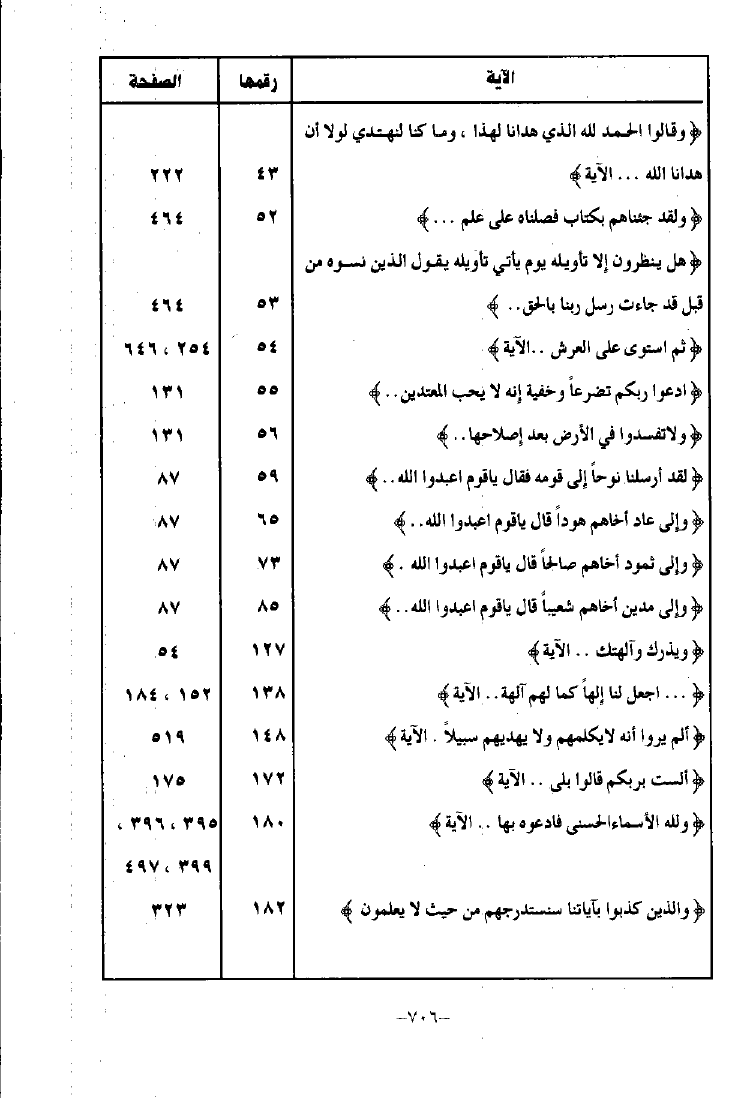 الآية رقمها الصفحة
﴿ وقالوا الحمد لله الذي هدانا لهذا ، وما كنا لنهتدي لولا أن
هدانا الله ... الآية ﴾ ٤٣ ٢٢٢
﴿ ولقد جئناهم بكتاب فصلناه على علم ... ﴾ ٥٢ ٤٦٤
﴿ هل ينظرون إلا تأويله يوم يأتي تأويله يقول الذين نسوه من
قبل قد جاءت رسل ربنا بالحق.. ﴾ ٥٣ ٤٦٤
﴿ ثم استوى على العرش ..الآية ﴾ ٥٤ ٢٥٤ ، ٦٤٦
﴿ ادعوا ربكم تضرعاً وخفية إنه لا يحب المعتدين.. ﴾ ٥٥ ١٣١
﴿ ولاتفسدوا في الأرض بعد إصلاحها.. ﴾ ٥٦ ١٣١
﴿ لقد أرسلنا نوحاً إلى قومه فقال ياقوم اعبدوا الله.. ﴾ ٥٩ ٨٧
﴿ وإلى عاد أخاهم هوداً قال ياقوم اعبدوا الله.. ﴾ ٦٥ ٨٧
﴿ وإلى ثمود أخاهم صالحاً قال ياقوم اعبدوا الله . ﴾ ٧٣ ٨٧
﴿ وإلى مدين أخاهم شعيباً قال ياقوم اعبدوا الله.. ﴾ ٨٥ ٨٧
﴿ ويذرك وآلهتك .. الآية ﴾ ١٢٧ ٥٤
﴿ ... اجعل لنا إلهاً كما لهم آلهة.. الآية ﴾ ١٣٨ ١٥٢ ، ١٨٤
﴿ ألم يروا أنه لايكلمهم ولا يهديهم سبيلاً . الآية ﴾ ١٤٨ ٥١٩
﴿ ألست بربكم قالوا بلى .. الآية ﴾ ١٧٢ ١٧٥
﴿ ولله الأسماءالحسنى فادعوه بها .. الآية ﴾ ١٨٠ ٣٩٥ ، ٣٩٦ ،
٣٩٩ ، ٤٩٧
﴿ والذين كذبوا بآياتنا سنستدرجهم من حيث لا يعلمون ﴾ ١٨٢ ٣٢٣
–٧٠٦–